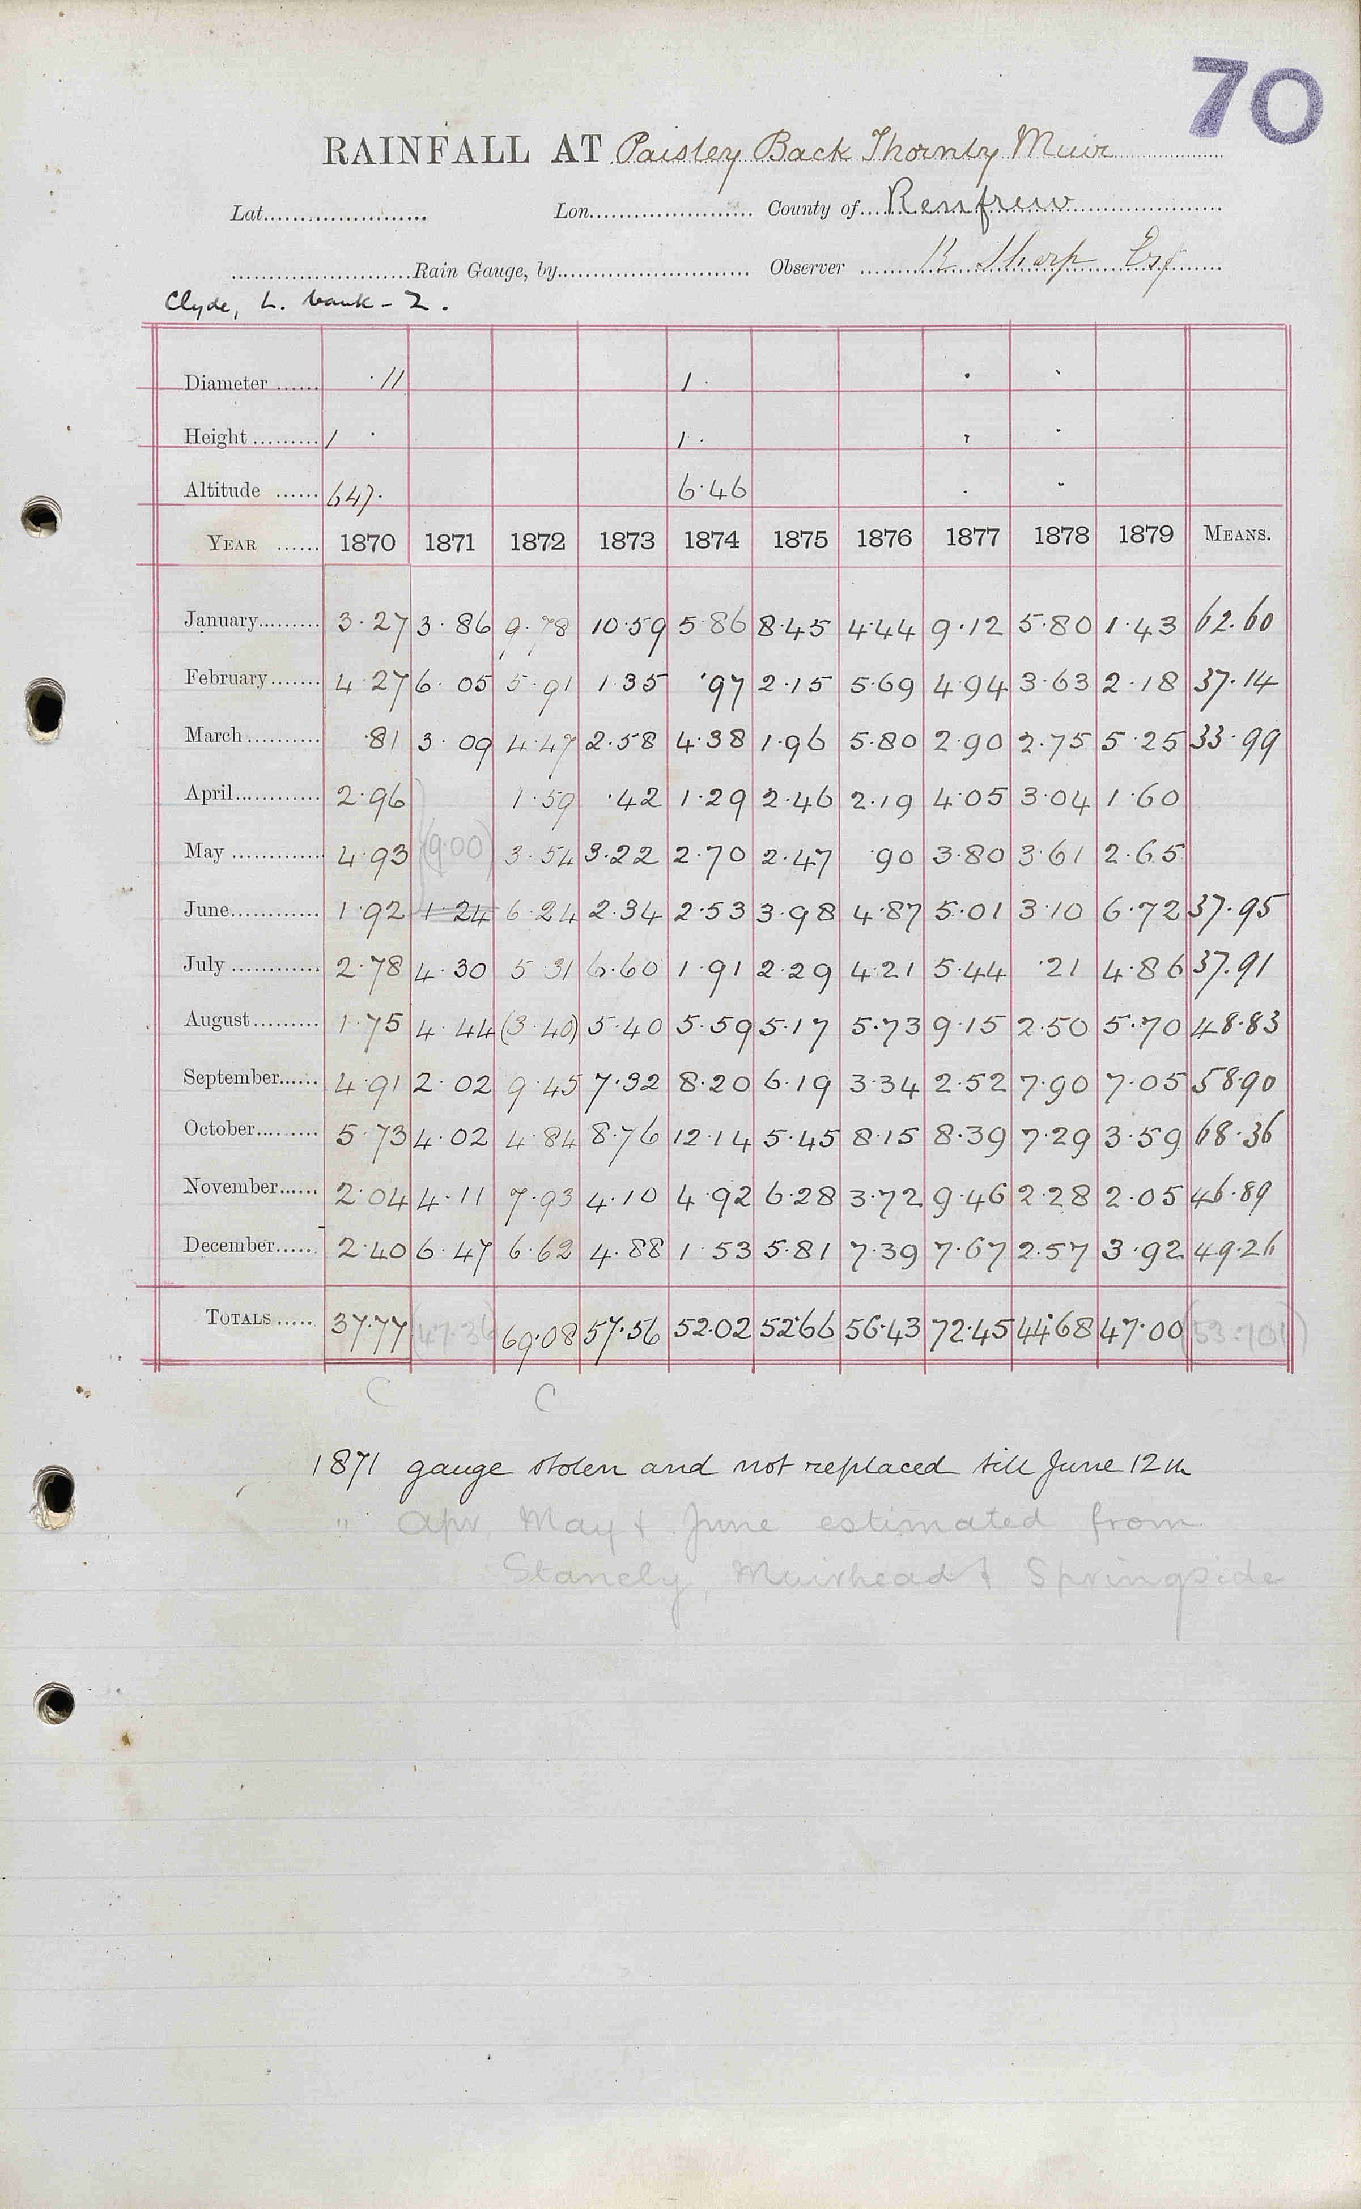 70
RAINFALL AT Paisley Back Thornly Muir
Lat. Lon. County of Renfrew
Rain Gauge, by Observer R Sharp Esq
Clyde, L. bank - 2.
Diameter ...... ·11 1 · · ·
Height ......... 1 · 1 · · ·
Altitude ...... 647· 6·46 · ·
YEAR ...... 1870 1871 1872 1873 1874 1875 1876 1877 1878 1879 MEANS.
January......... 3·27 3·86 9·78 10·59 5·86 8·45 4·44 9·12 5·80 1·43 62·60
February....... 4·27 6·05 5·91 1·35 ·97 2·15 5·69 4·94 3·63 2·18 37·14
March .......... ·81 3·09 4·47 2·58 4·38 1·96 5·80 2·90 2·75 5·25 33·99
April............ 2·96 1·59 ·42 1·29 2·46 2·19 4·05 3·04 1·60
May ............. 4·93 (9·00) 3·54 3·22 2·70 2·47 ·90 3·80 3·61 2·65
June............. 1·92 1·24 6·24 2·34 2·53 3·98 4·87 5·01 3·10 6·72 37·95
July ............ 2·78 4·30 5·31 6·60 1·91 2·29 4·21 5·44 ·21 4·86 37·91
August ......... 1·75 4·44 (3·40) 5·40 5·59 5·17 5·73 9·15 2·50 5·70 48·83
September...... 4·91 2·02 9·45 7·32 8·20 6·19 3·34 2·52 7·90 7·05 58·90
October......... 5·73 4·02 4·84 8·76 12·14 5·45 8·15 8·39 7·29 3·59 68·36
November...... 2·04 4·11 7·93 4·10 4·92 6·28 3·72 9·46 2·28 2·05 46·89
December...... 2·40 6·47 6·62 4·88 1·53 5·81 7·39 7·67 2·57 3·92 49·26
TOTALS ..... 37·77 (47·36) 69·08 57·56 52·02 52·66 56·43 72·45 44·68 47·00 (53·701)
C C
1871 gauge stolen and not replaced till June 12th
" Apr, May & June estimated from
Stanely, Muirhead & Springside